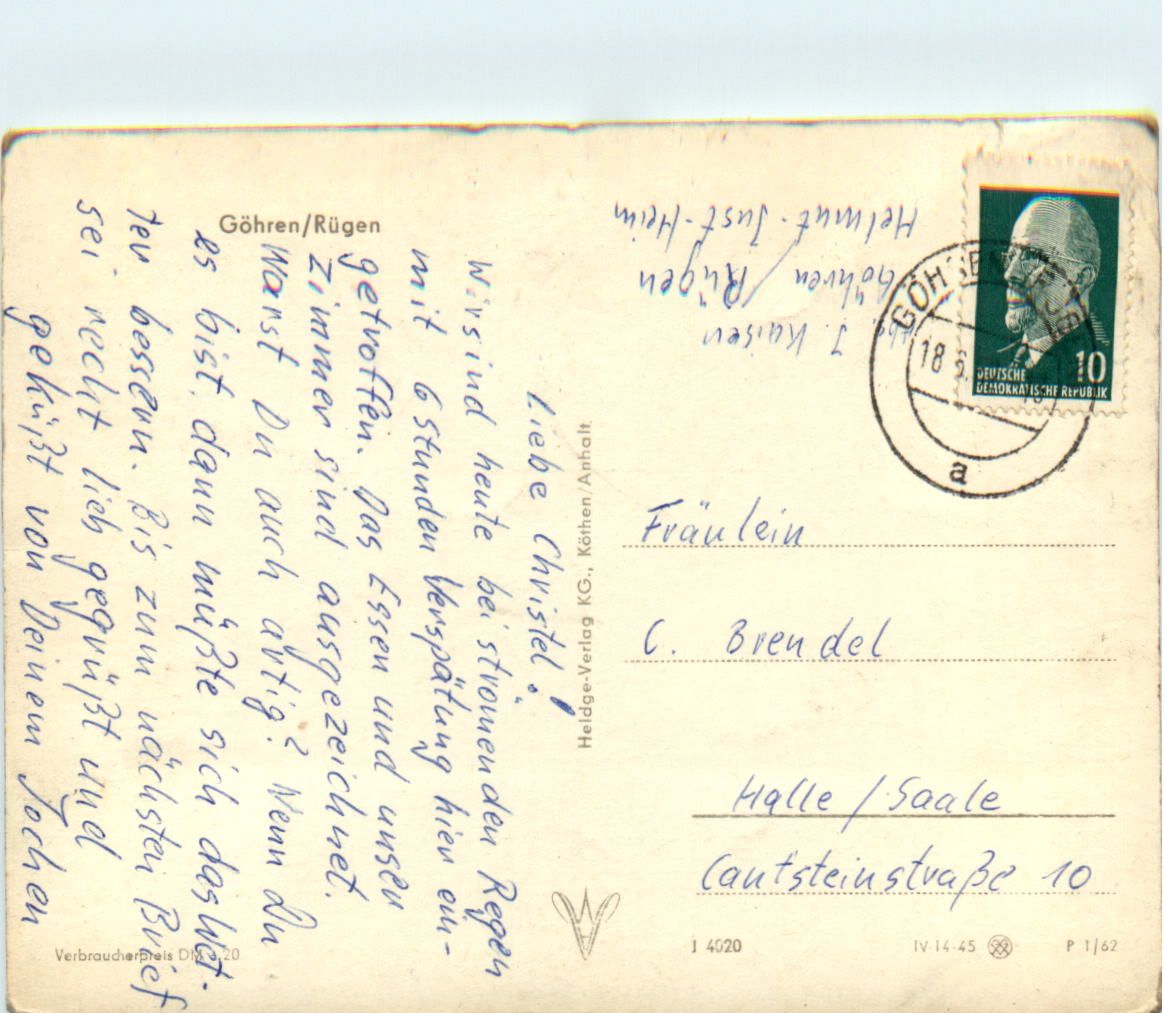 Göhren/Rügen
Liebe Christel!
Wir sind heute bei strömenden Regen
mit 6 Stunden Verspätung hier ein-
getroffen. Das Essen und unser
Zimmer sind ausgezeichnet.
Warst Du auch artig? Wenn Du
es bist, dann müßte sich das Wet-
ter bessern. Bis zum nächsten Brief
sei recht lieb gegrüßt und
geküßt von Deinem Jochen
Verbraucherpreis DM 0,20
Heldge-Verlag KG., Köthen/Anhalt
Abs. J. Kaiser
Göhren/Rügen
Helmut-Just-Heim
GÖHREN
18 6.
a
10
DEUTSCHE
DEMOKRATISCHE REPUBLIK
Fräulein
C. Brendel
Halle/Saale
Cantsteinstraße 10
J 4020
IV-14-45
P 1/62